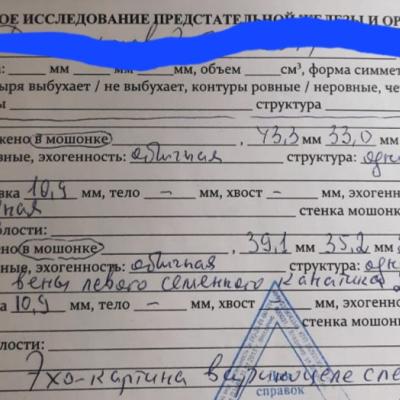 ОЕ ИССЛЕДОВАНИЕ ПРЕДСТАТЕЛЬНОЙ ЖЕЛЕЗЫ И ОР
: ____ мм ____ мм ____ мм, объем ____ см³, форма симме
ыря выбухает / не выбухает, контуры ровные / неровные, че
ы ____ структура ____
жено в мошонке ____, 43,3 мм 33,0 мм
вные, эхогенность: обычная структура: одн
вка 10,9 мм, тело – мм, хвост – мм, эхоген
ная ____ стенка мошонк
бласти: ____
ено в мошонке ____, 39,1 мм 35,2 мм
ные, эхогенность: обычная структура: одн
вены левого семенного канатика
а 10,9 мм, тело – мм, хвост мм, эхогенно
стенка мошо
ласти:
Эхо-картина варикоцеле сле
справок